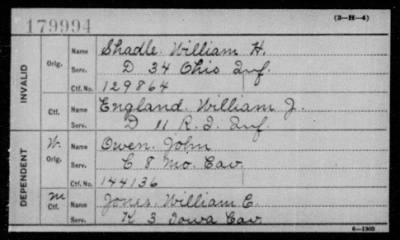 179994
(3—H—4)
INVALID
Orig. Name Shadle William H.
Serv. D 34 Ohio Inf.
Ctf. No. 129864
Ctf. Name England William J.
Serv. D 11 R. I. Inf.
DEPENDENT
W. Orig. Name Owen John
Serv. C 8 Mo. Cav
Ctf. No. 144136
M Ctf. Name Jones William E.
Serv. K 3 Iowa Cav
6—1303